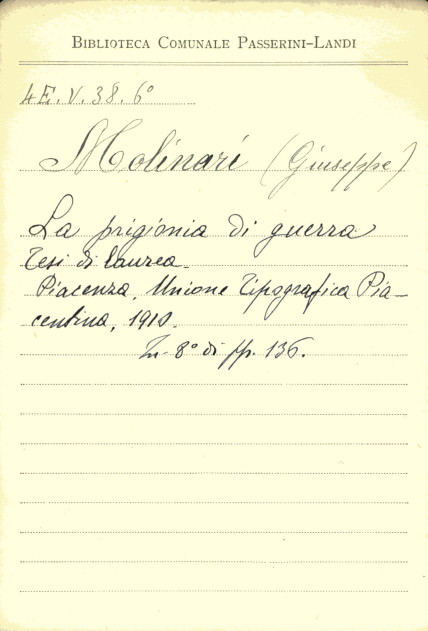 BIBLIOTECA COMUNALE PASSERINI-LANDI
4E.V.38.6°
Molinari (Giuseppe)
La prigionia di guerra
Tesi di laurea.
Piacenza, Unione Tipografica Pia-
centina, 1910.
In-8° di pp. 136.